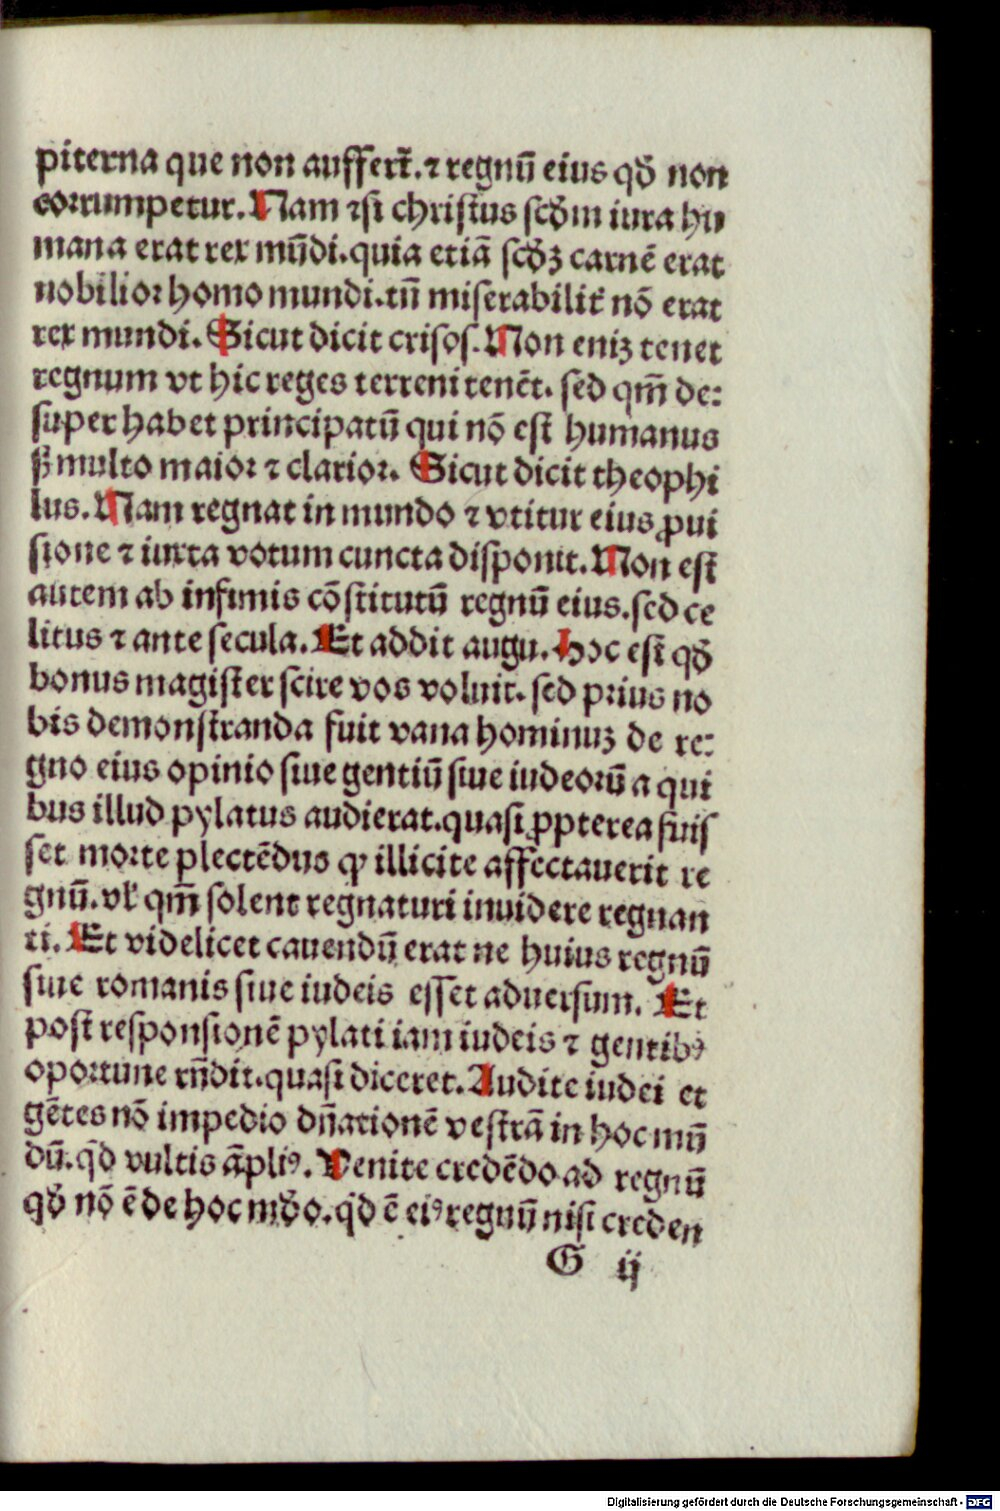 piterna que non auffert̄. ⁊ regnū eius qđ non
corrumpetur. Nam ⁊si christus scđm iura hu
mana erat rex mūdi. quia etiā scđꝫ carnē erat
nobilior homo mundi. tn̄ miserabilit̄ nō erat
rex mundi. Sicut dicit crisos. Non eniꝫ tenet
regnum vt hic reges terreni tenēt. sed qm̄ de⸗
super habet principatū qui nō est humanus
sꝫ multo maior ⁊ clarior. Sicut dicit theophi
lus. Nam regnat in mundo ⁊ vtitur eius ꝓui
sione ⁊ iuxta votum cuncta disponit. Non est
autem ab infimis cōstitutū regnū eius. sed ce
litus ⁊ ante secula. Et addit augu. Hoc est qđ
bonus magister scire vos voluit. sed prius no
bis demonstranda fuit vana hominuꝫ de re⸗
gno eius opinio siue gentiū siue iudeorū a qui
bus illud pylatus audierat. quasi ꝓpterea fuis
set morte plectēdus ꝙ illicite affectauerit re
gnū. vl̄ qm̄ solent regnaturi inuidere regnan
ti. Et videlicet cauendū erat ne huius regnū
siue romanis siue iudeis esset aduersum. Et
post responsionē pylati iam iudeis ⁊ gentibꝰ
oportune rn̄dit. quasi diceret. Audite iudei et
gētes nō impedio dn̄ationē vestrā in hoc mū
dū. qđ vultis āpliꝰ. Venite credēdo ad regnū
qđ nō ē de hoc mđo. qđ ē eiꝰ regnū nisi creden
G ij
Digitalisierung gefördert durch die Deutsche Forschungsgemeinschaft - DFG